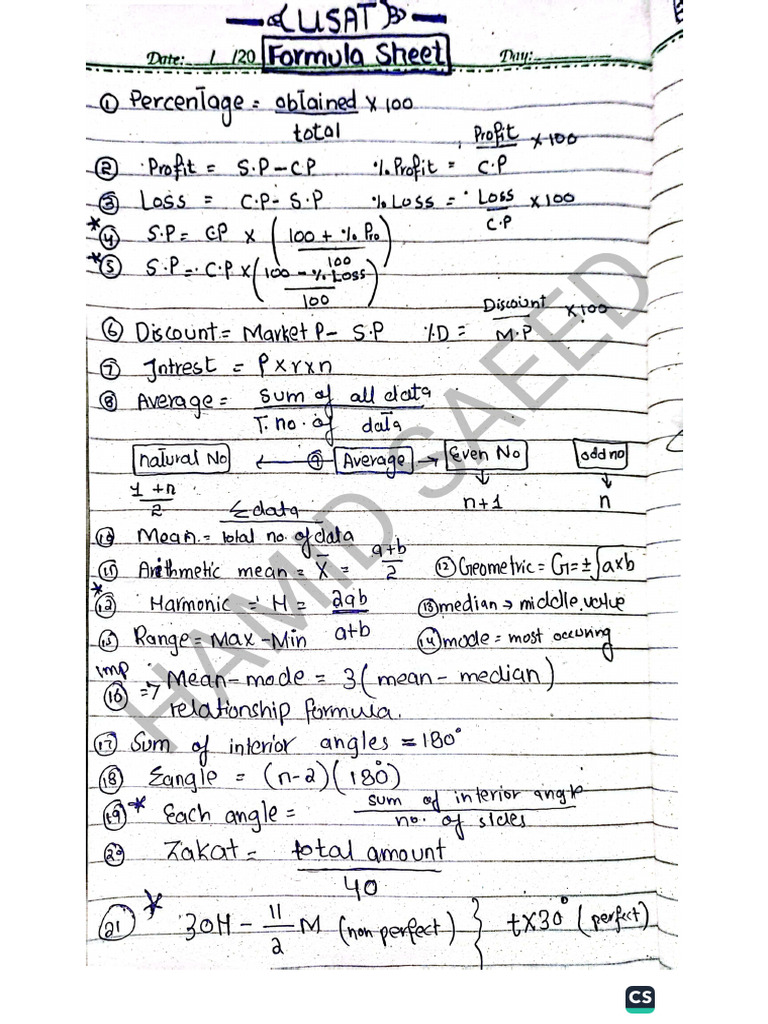 USAT
Date: / /20 Formula Sheet Day:
① Percentage = obtained/total × 100
② Profit = S.P – C.P %Profit = Profit/C.P × 100
③ Loss = C.P – S.P % Loss = Loss/C.P × 100
*④ S.P = CP × (100 + % Pro/100)
*⑤ S.P = C.P × (100 – % Loss/100)
⑥ Discount = Market P – S.P %D = Discount/M.P × 100
⑦ Intrest = P × r × n
⑧ Average = Sum of all data/T. no. of data
natural No ← ⑨ Average → Even No odd no
1 + n/2 n + 1 n
⑩ Mean = Σdata/total no. of data
⑪ Arithmetic mean = X̄ = a+b/2 ⑫ Geometric = G = ±√a×b
*12 Harmonic = H = 2ab/a+b ⑬ median → middle value
⑮ Range = Max – Min ⑭ mode = most occuring
imp
⑯ => Mean – mode = 3 (mean – median)
relationship formula.
⑰ Sum of interior angles = 180°
⑱ Σangle = (n-2)(180°)
⑲ * Each angle = sum of interior angle/no. of sides
⑳ Zakat = total amount/40
㉑ * 30H – 11/2 M (non perfect) } t×30° (perfect)
HAMID SAEED
CS